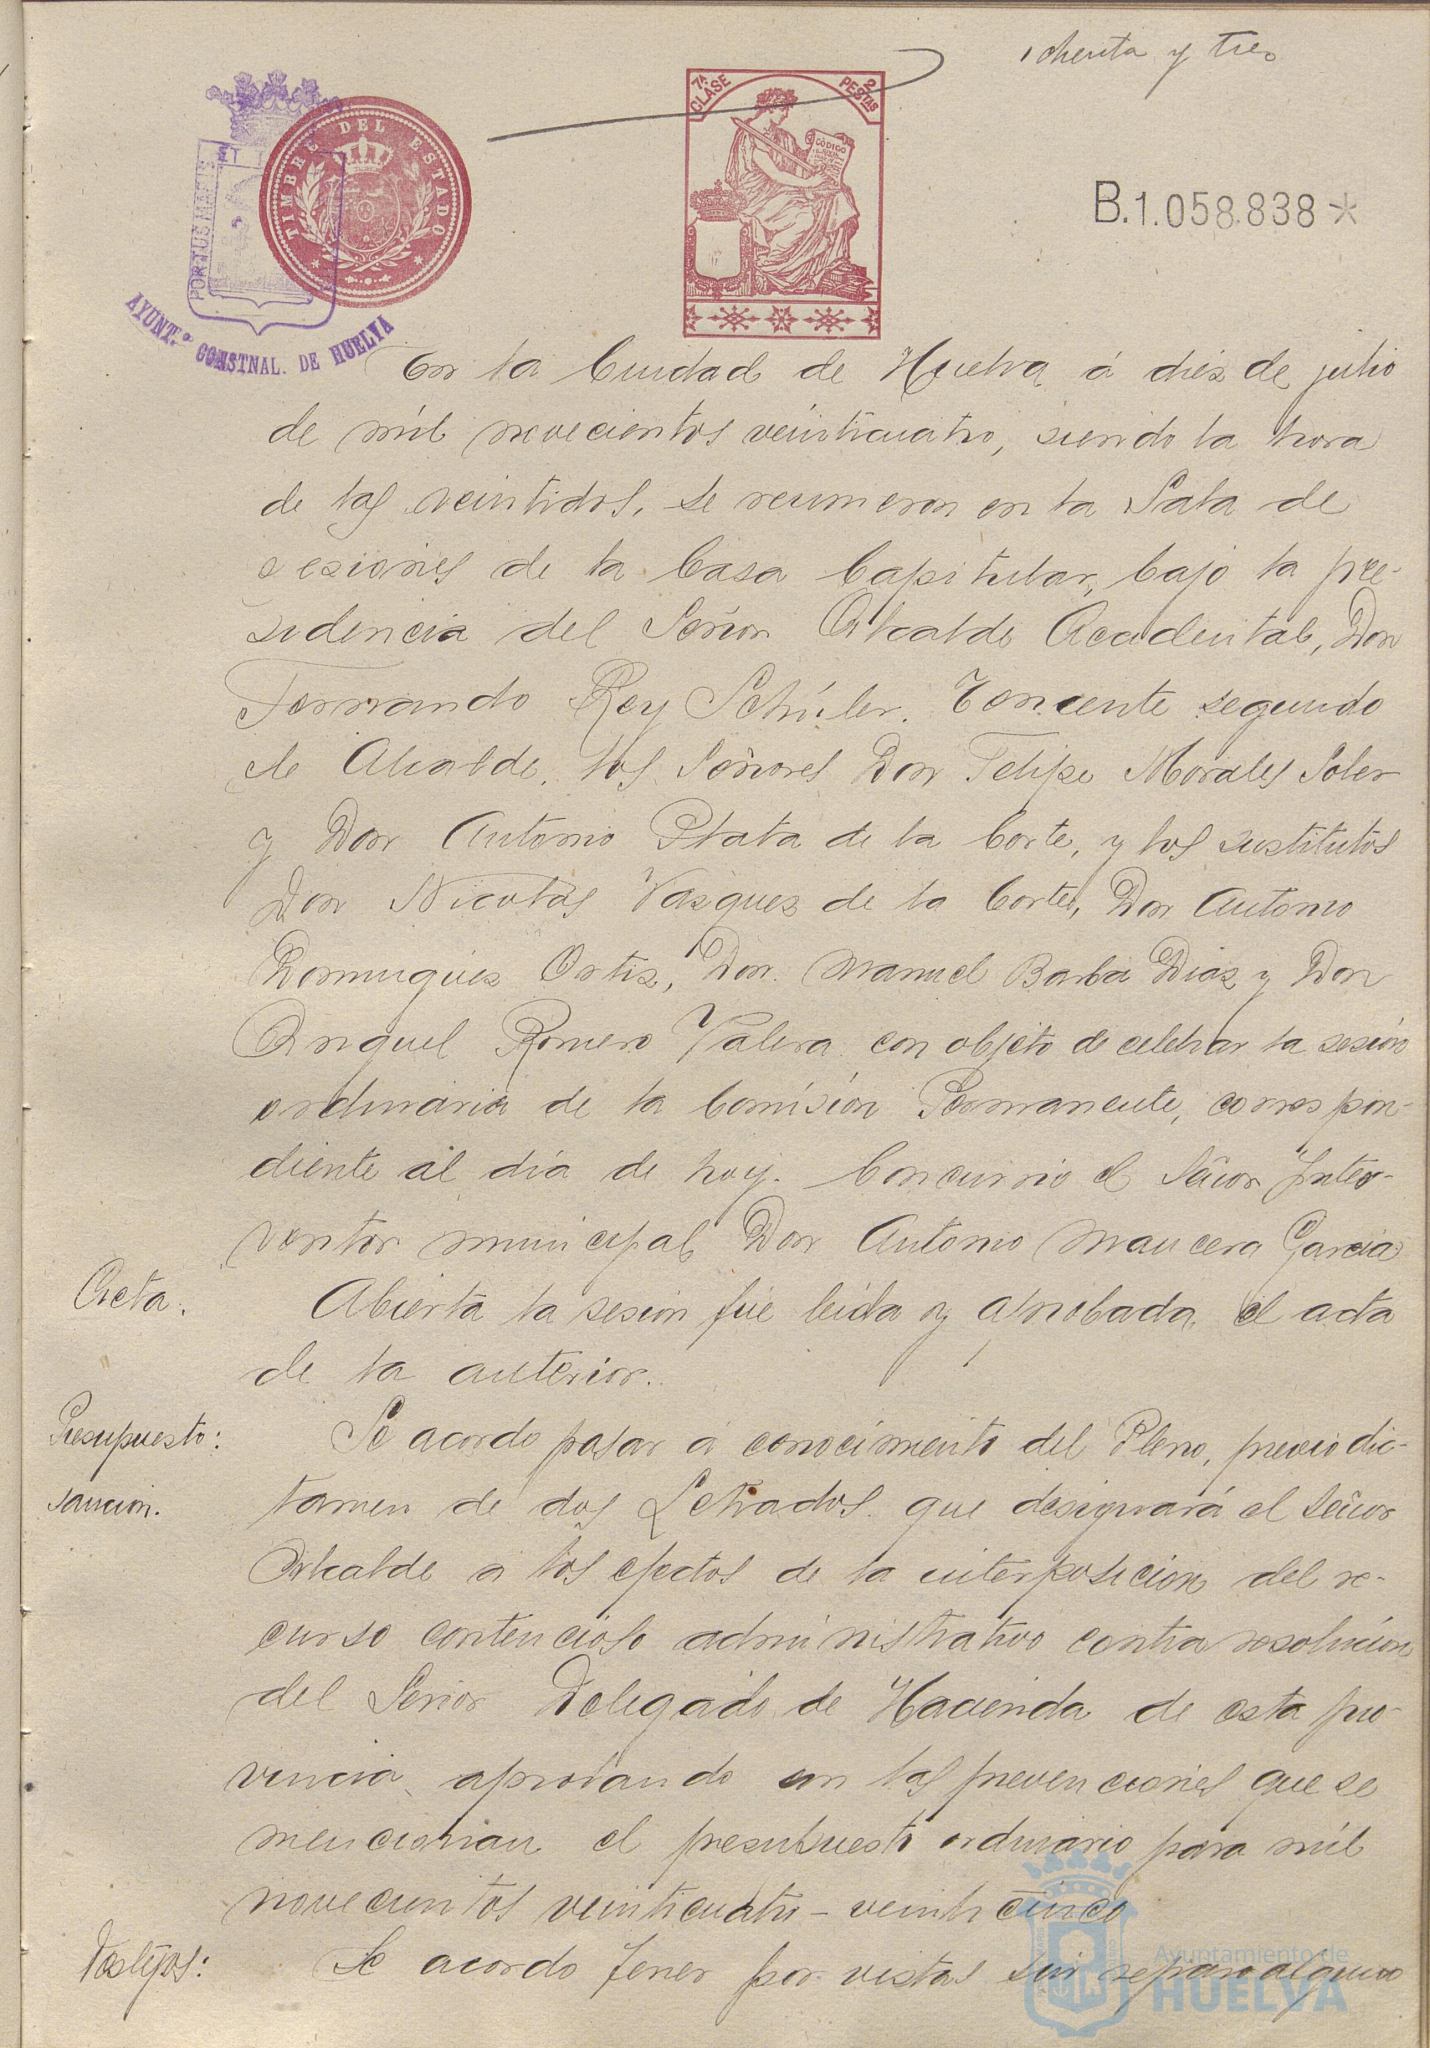 ochenta y tres
7ª CLASE
2 PESTAS
CÓDIGO
TIMBRE DEL ESTADO
PORTUS MARIS ET
AYUNT.º CONSTNAL. DE HUELVA
B.1.058.838*
En la Ciudad de Huelva á diez de julio
de mil novecientos veinticuatro, siendo la hora
de las veintidos, se reunieron en la Sala de
sesiones de la Casa Capitular, bajo la pre-
sidencia del Señor Alcalde Accidental, Don
Fernando Rey Schúler, Teniente segundo
de Alcalde, los Señores Don Felipe Morales Soler
y Don Antonio Plata de la Corte, y los sustitutos
Don Nicolás Vazquez de la Corte, Don Antonio
Dominguez Ortiz, Don Manuel Barba Diaz y Don
Miguel Romero Valera con objeto de celebrar la sesión
ordinaria de la Comisión Permanente, correspon-
diente al día de hoy. Concurrio el Señor Inter-
ventor municipal Don Antonio Mancera Garcia
Acta. Abierta la sesion fue leida y aprobada el acta
de la anterior.
Presupuesto: Se acordo pasar á conocimiento del Pleno, previo dic-
sancion. tamen de dos Letrados que designará el Señor
Alcalde a los efectos de la interposicion del re-
curso contencioso administrativo contra resolucion
del Señor Delegado de Hacienda de esta pro-
vincia aprobando con las prevenciones que se
mencionan el presupuesto ordinario para mil
novecientos veinticuatro-veinticinco
Festejos: Se acordo tener por vistas sin reparo alguno
Ayuntamiento de
HUELVA